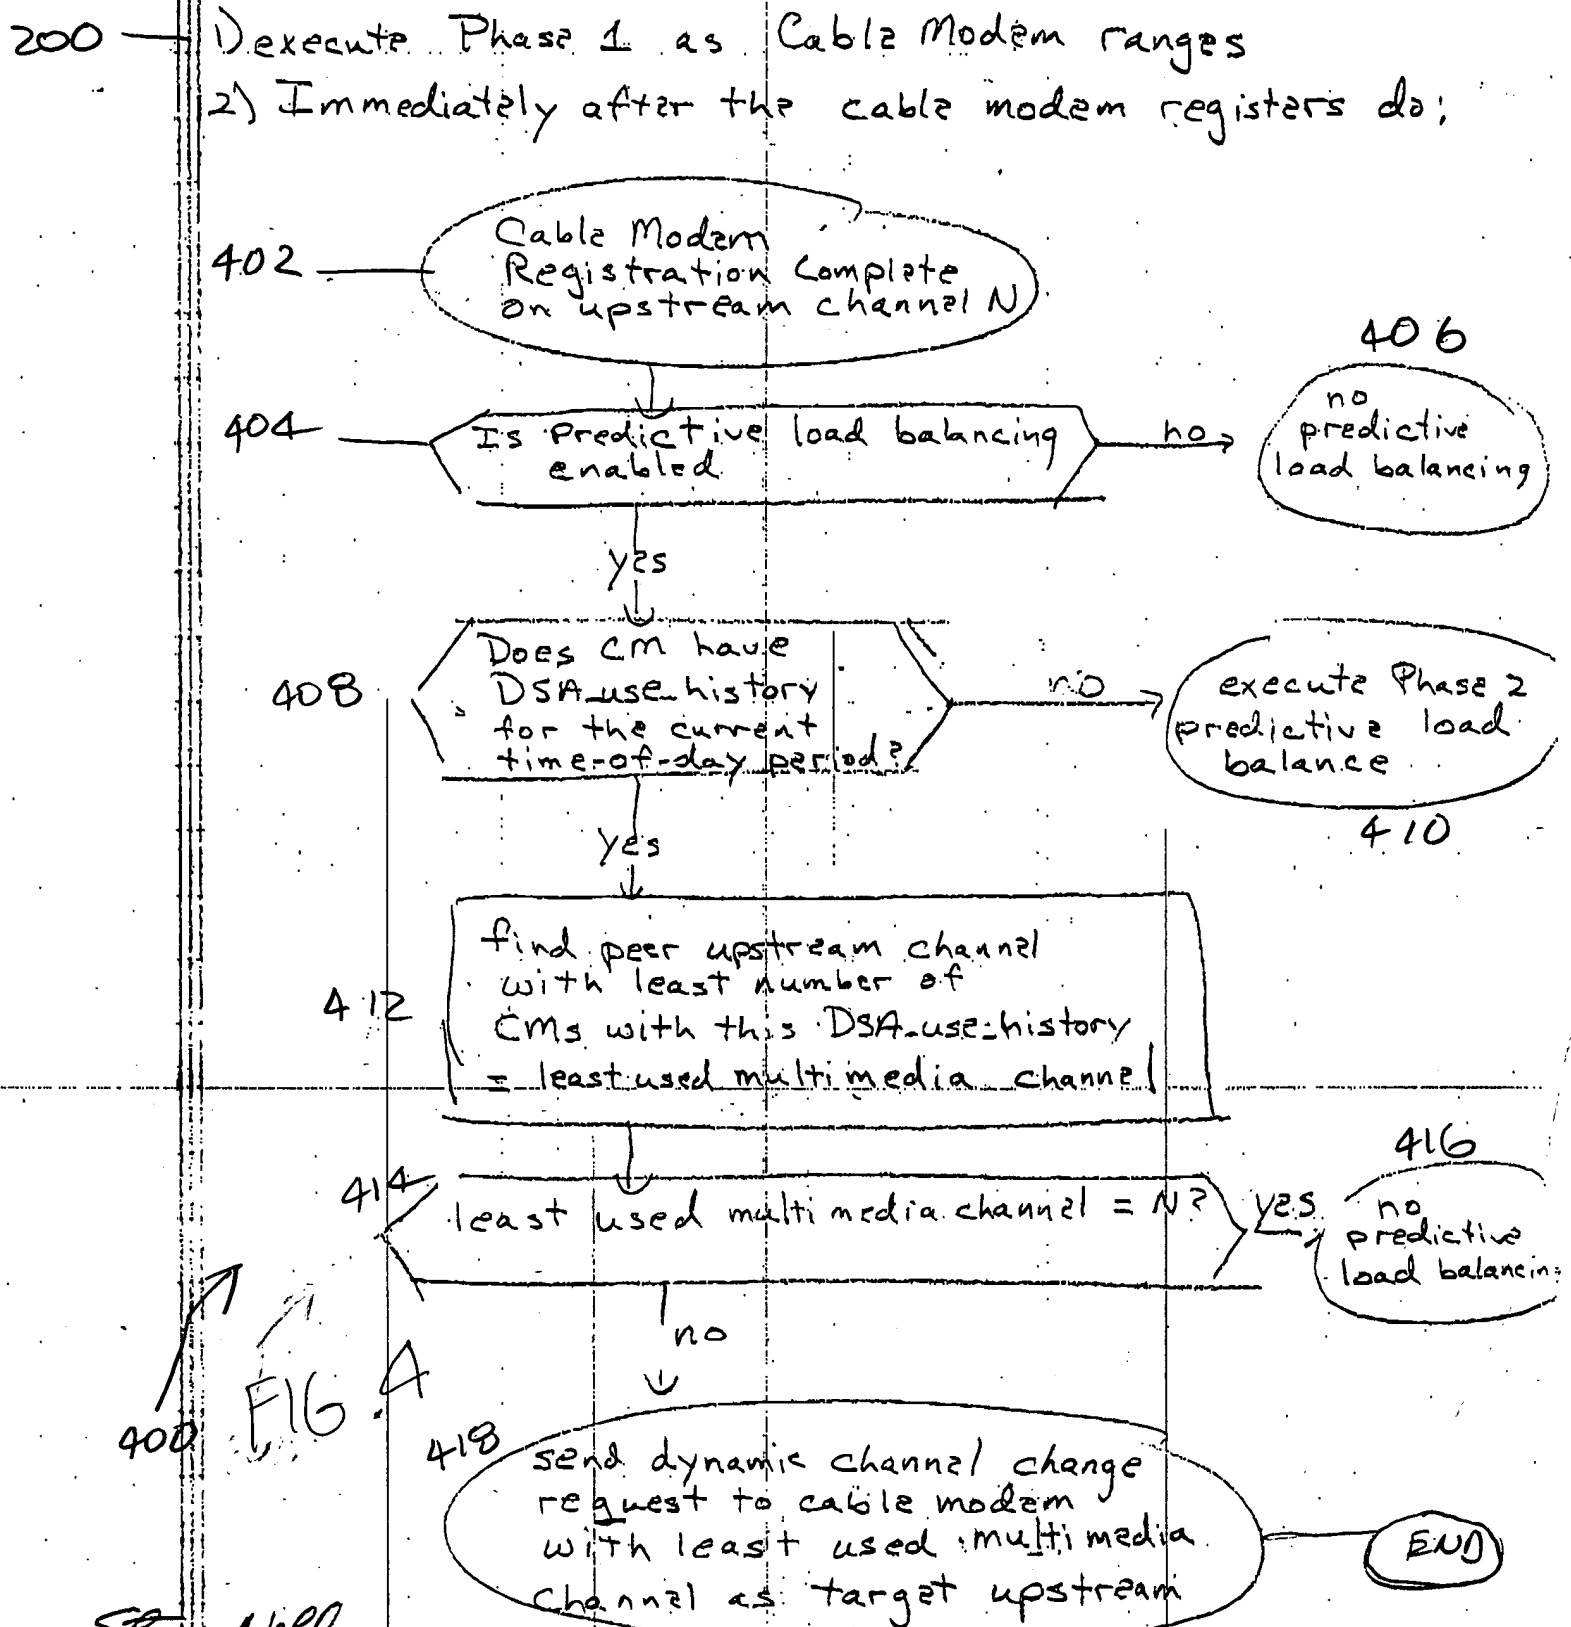 200
1) execute Phase 1 as Cable Modem ranges
2) Immediately after the cable modem registers do:
402
Cable Modem
Registration Complete
on upstream channel N
406
no
predictive
load balancing
404
Is Predictive load balancing
enabled
no
yes
408
Does CM have
DSA_use_history
for the current
time-of-day period?
no
execute Phase 2
predictive load
balance
410
yes
412
find peer upstream channel
with least number of
CMs with this DSA_use_history
= least used multimedia channel
414
least used multimedia channel = N?
yes
416
no
predictive
load balancin
no
400
FIG. 4
418
send dynamic channel change
request to cable modem
with least used multimedia
channel as target upstream
END